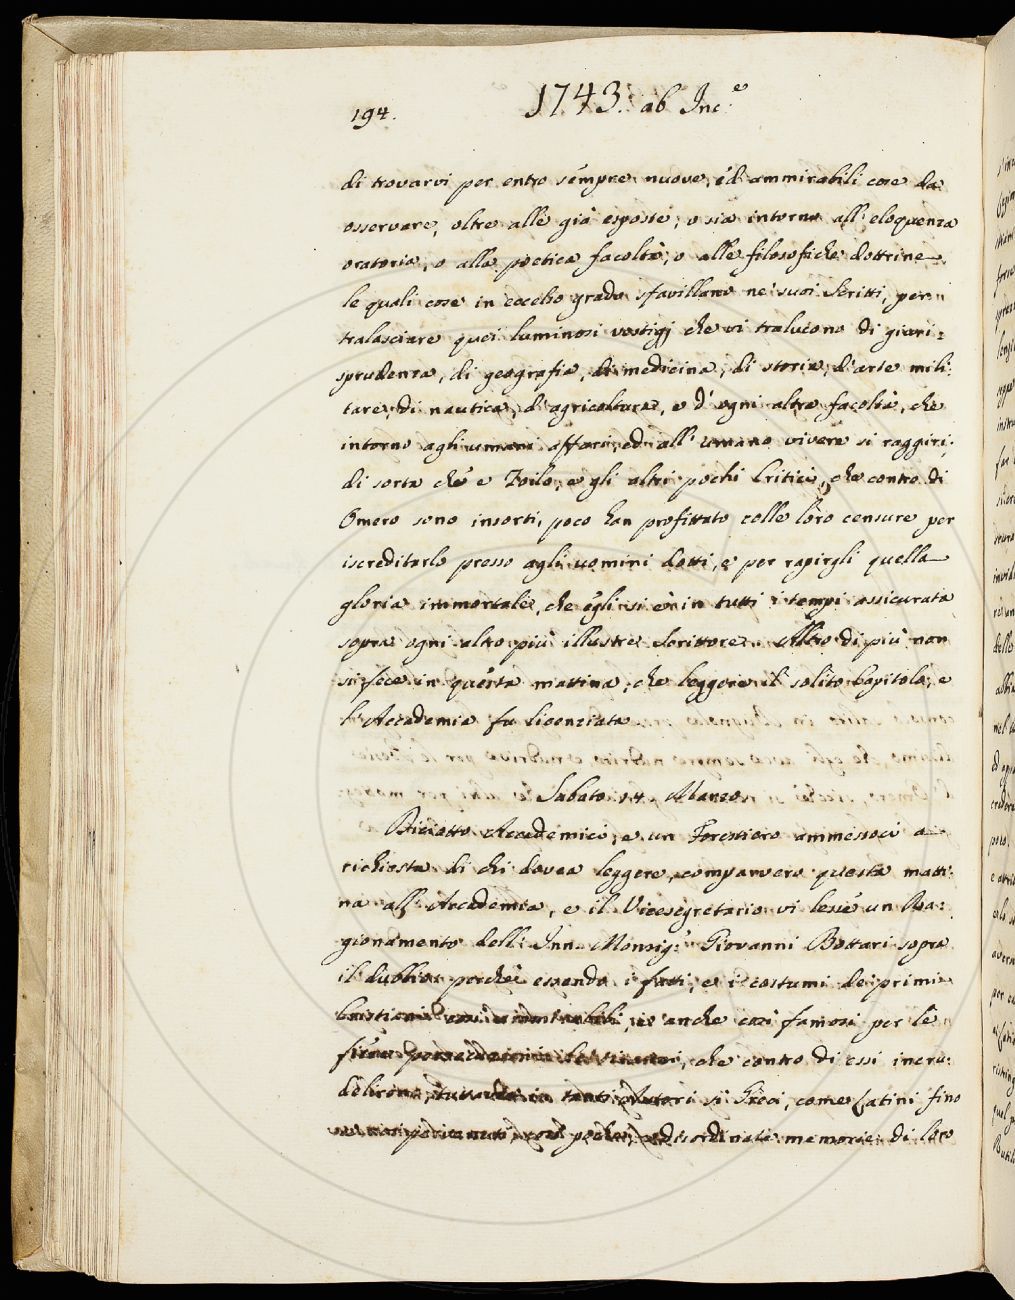 194.
1743. ab Inc.e
di trovarvi per entro sempre nuove, ed ammirabili cose da
osservare, oltre alle già esposte; o sia intorno all'eloquenza
oratoria, o alla poetica facoltà, o alle filosofiche dottrine,
le quali cose in eccelso grado sfavillano ne' suoi Scritti, per
tralasciare quei luminosi vestigj che vi tralucono di giuri=
sprudenza, di geografia, di medicina, di storia, d'arte mili=
tare, di nautica, d'agricoltura, e d'ogni altra facoltà, che
intorno agli umani affari, ed all'umano vivere si raggiri;
di sorta che e Zoilo, e gli altri pochi Critici, che contro di
Omero sono insorti, poco han profittato colle loro censure per
iscreditarlo presso agli uomini dotti, e per rapirgli quella
gloria immortale, che egli si è in tutti i tempi assicurata
sopra ogni altro più illustre Scrittore. Altro di più non
si fece in questa mattina, che leggere il solito Capitolo, e
l'Accademia fu licenziata.
Sabato 14. Marzo.
Diciotto Accademici, e un Forestiero ammessoci a
richiesta di chi dovea leggere, comparvero questa matti=
na all'Accademia, e il Vicesegretario vi lesse un Ra=
gionamento dell' Monsig.r Giovanni Bottari sopra
il dubbio perchè essendo i fatti, e i costumi dei primi
Cristiani così ammirabili, e anche così famosi per le
fiere persecuzioni de' tiranni, che contro di essi incru=
delirono, tuttavia in tanti Autori sì Greci, come Latini fino
a noi pervenuti, così poche, e disordinate memorie di loro